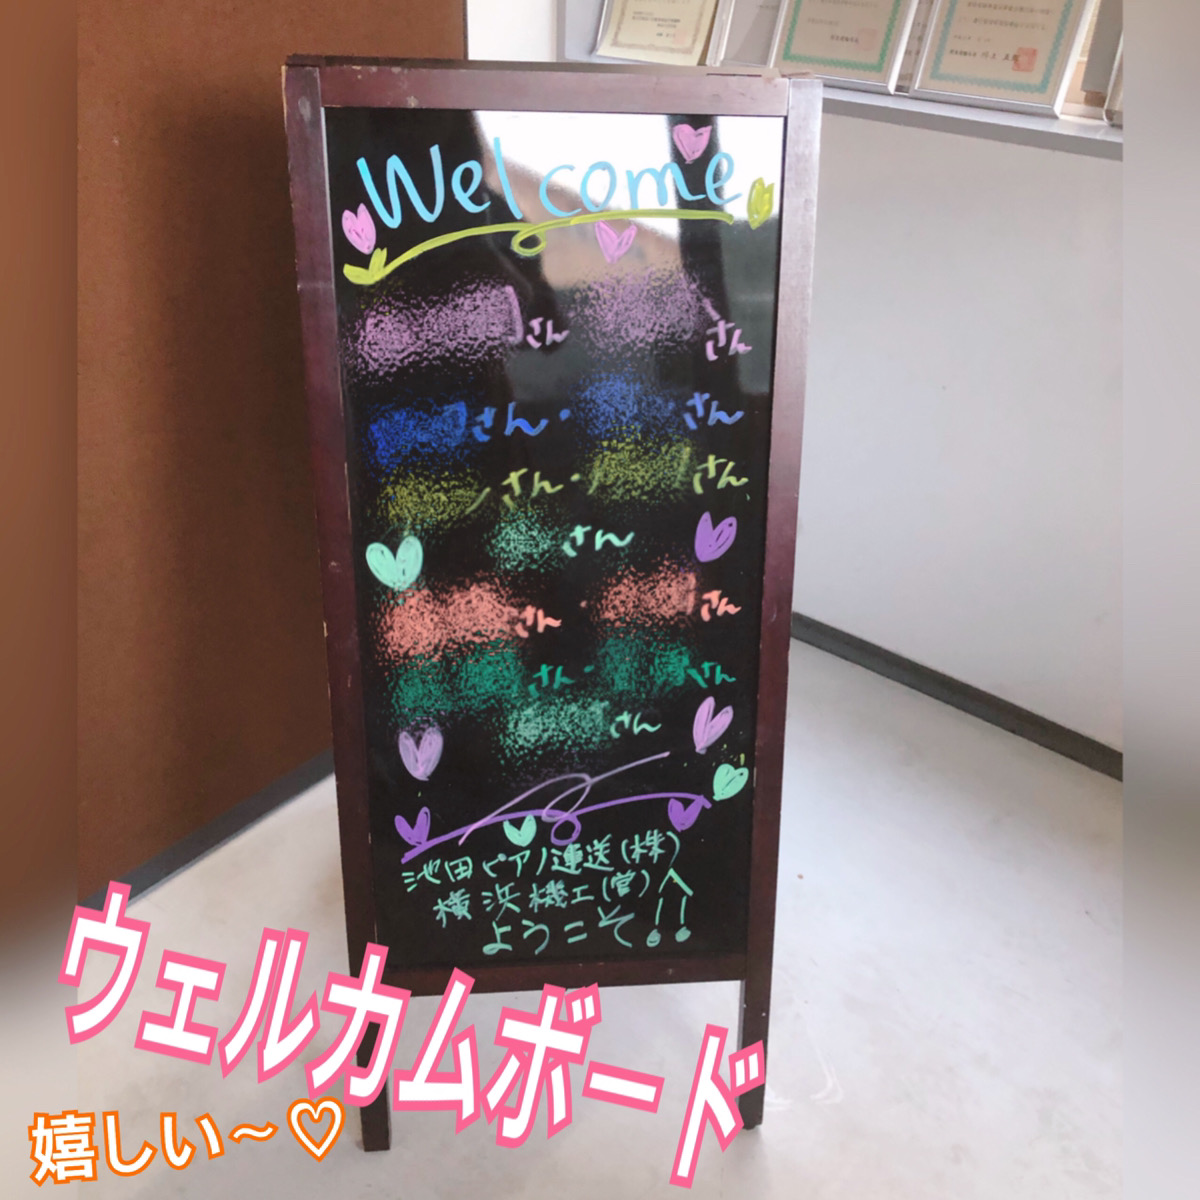 Welcome
さん さん
さん・ さん
さん・ さん
さん
さん・ さん
さん・ さん
さん
池田ピアノ運送(株)
横浜機工(営)へ
ようこそ!!
ウェルカムボード
嬉しい~♡